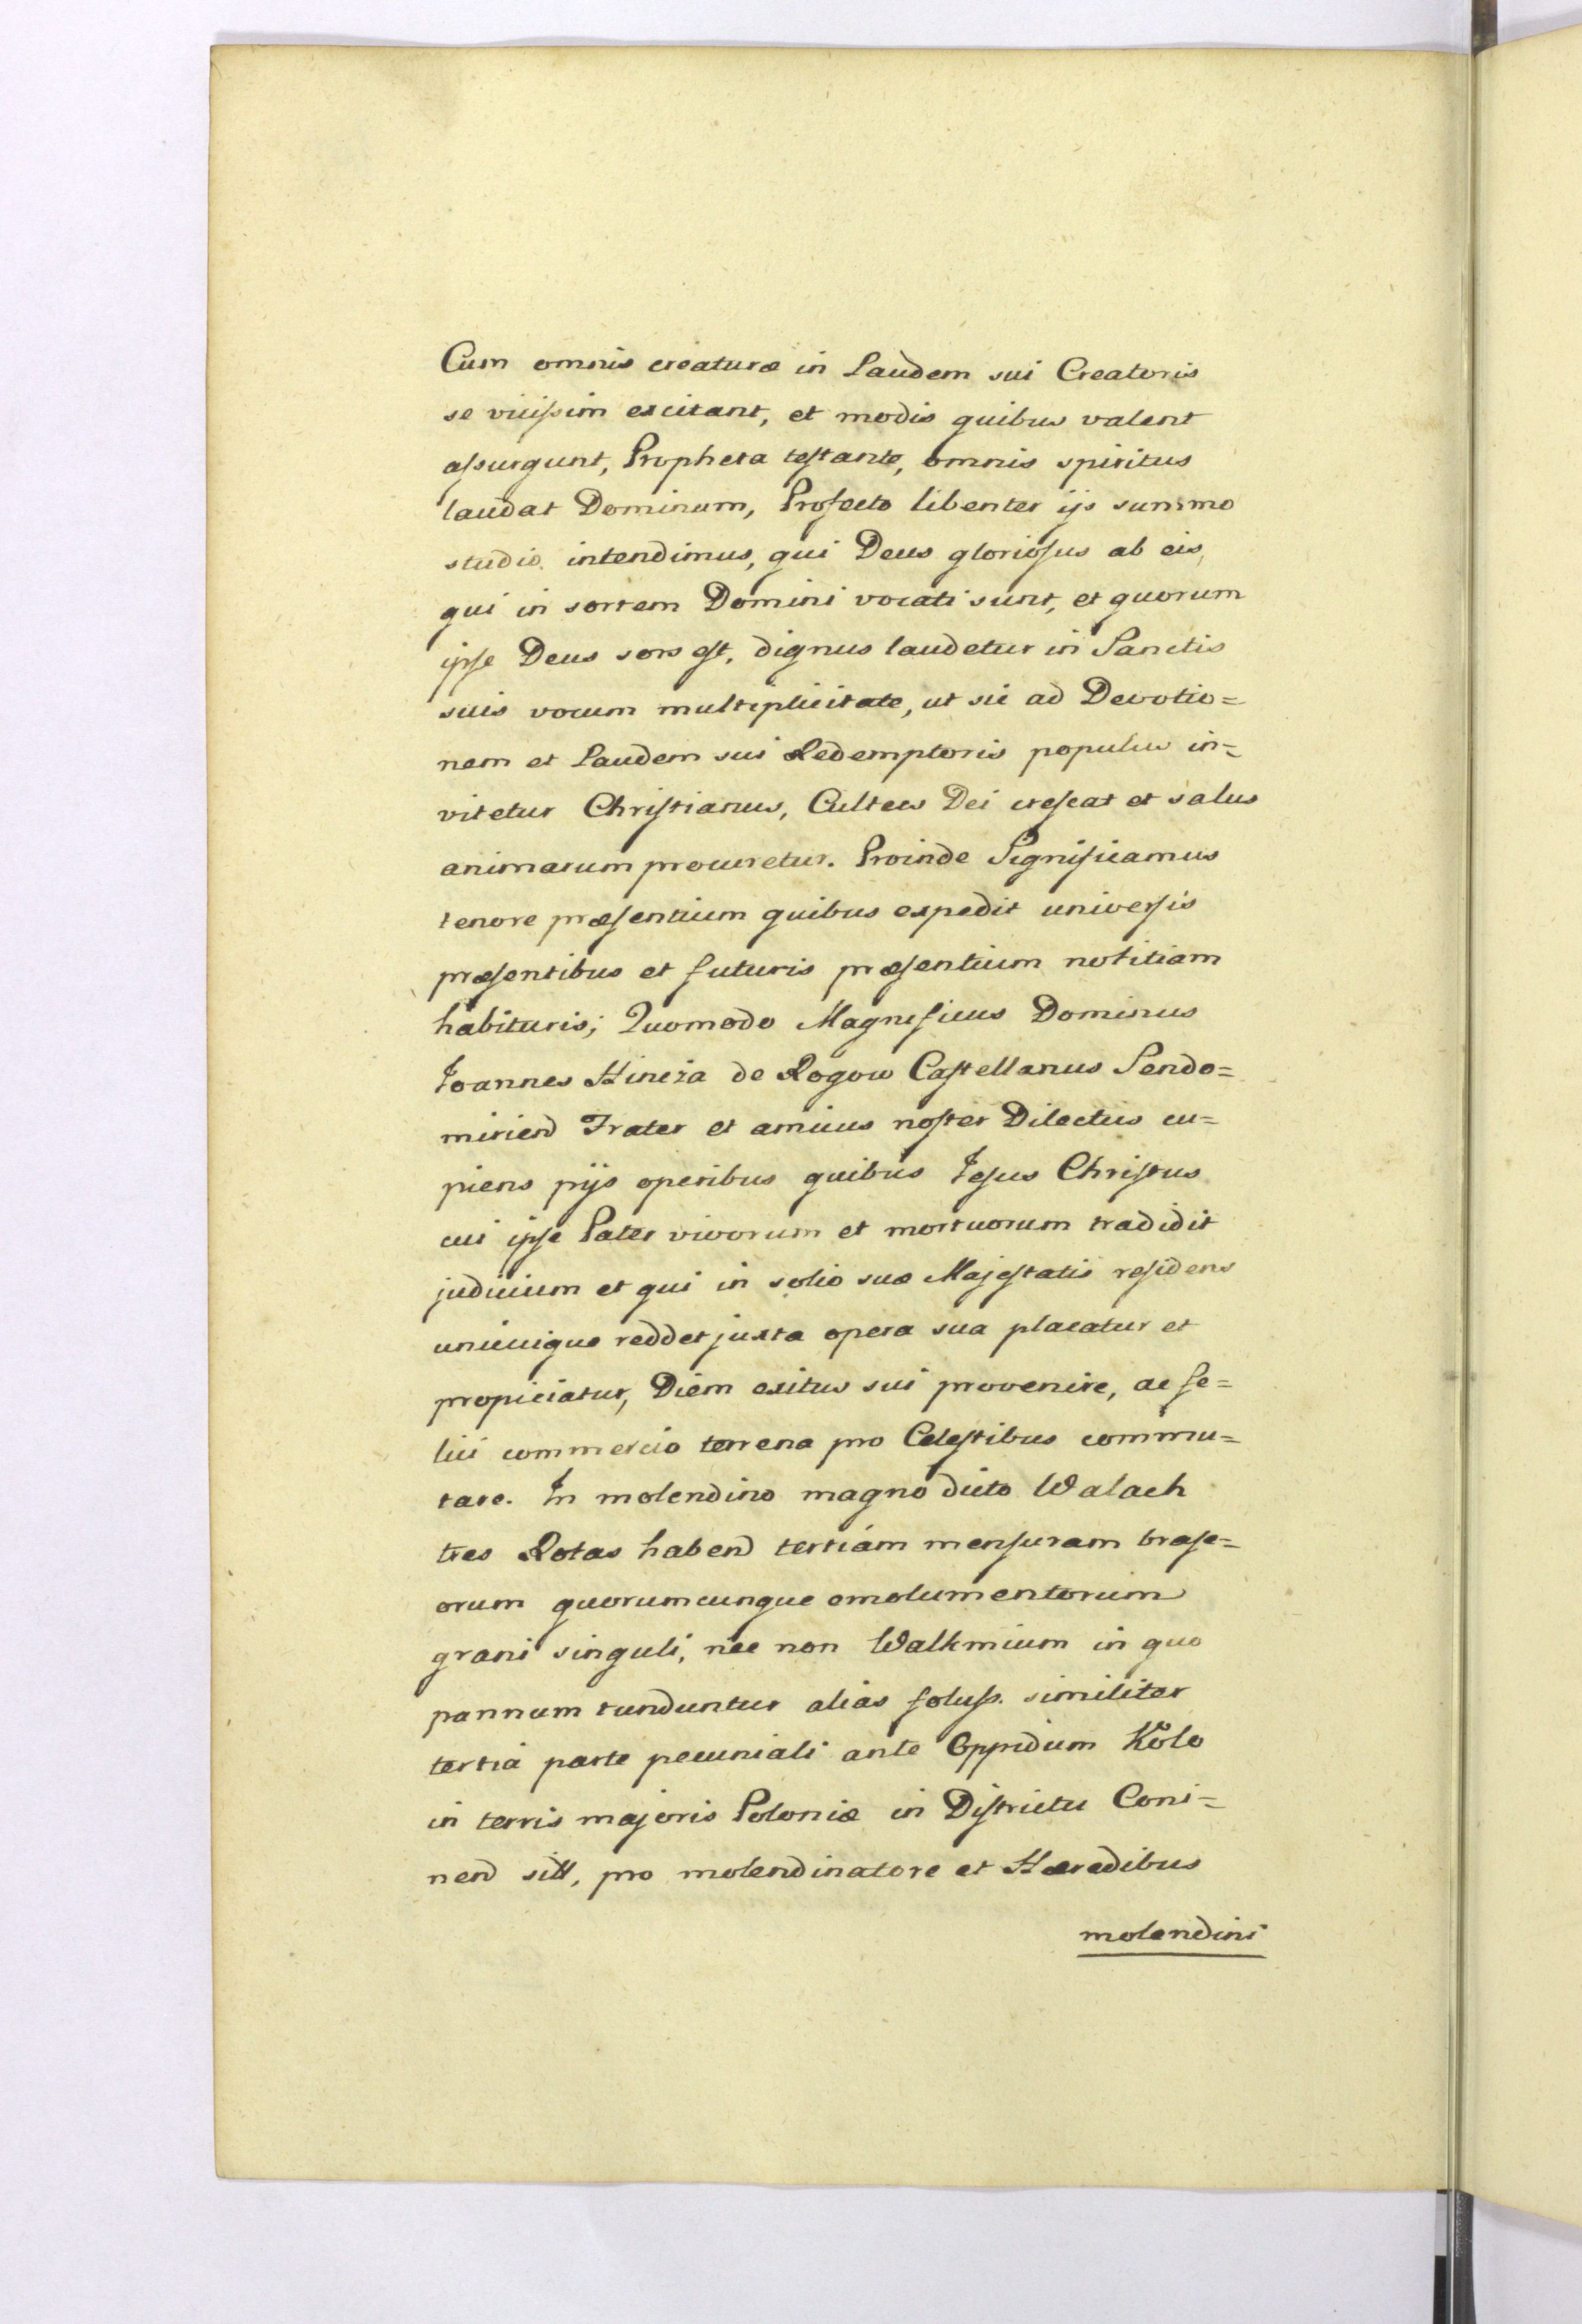 Cum omnis creaturæ in Laudem sui Creatoris
se viciſsim excitant, et modis quibus valent
aſsurgunt, Propheta teſtante, omnis spiritus
laudat Dominum, Profecto libenter ijs summo
studio intendimus, qui Deus glorioſus ab eis,
qui in sortem Domini vocati sunt, et quorum
ipſe Deus sors eſt, dignus laudetur in Sanctis
suis vocum multiplicitate, ut sic ad Devotio=
nem et Laudem sui Redemptoris populus in=
vitetur Chriſtianus, Cultus Dei creſcat et salus
animarum procuretur. Proinde Significamus
tenore præſentium quibus expedit univerſis
præſentibus et futuris præſentium notitiam
habituris; Quomodo Magnificus Dominus
Joannes Hincza de Rogow Caſtellanus Sendo=
mirien̄ Frater et amicus noſter Dilectus cu=
piens pijs operibus quibus Jeſus Chriſtus
cui ipſe Pater vivorum et mortuorum tradidit
judicium et qui in solio suæ Majeſtatis reſidens
unicuique reddet juxta opera sua placatur et
propiciatur, Diem exitus sui provenire, ac fe=
lici commercio terrena pro Celeſtibus commu=
tare. In molendino magno dicto Walach
tres Rotas haben̄ tertiam menſuram braſe=
orum quorumcunque emolumentorum
grani singuli, nec non Walkmium in quo
pannum tunduntur alias foluſs. similiter
tertia parte pecuniali ante Oppidum Koło
in terris majoris Poloniæ in Diſtrictu Coni=
nen̄ sitt, pro molendinatore et Hæredibus
molendini